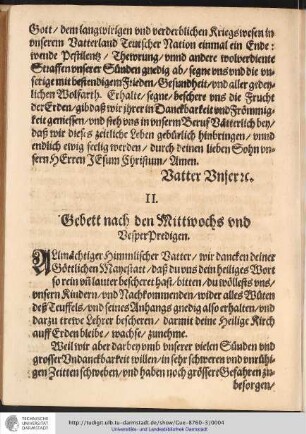 Gott/ dem langwirigen vnd verderblichen Kriegswesen in
vnserem Vatterland Teutscher Nation einmal ein Ende:
wende Pestilentz/ Thewrung/ vnnd andere wolverdiente
Straffen vnserer Sünden gnedig ab/ segne vns vnd die vn-
serige mit bestendigem Frieden/ Gesundheit/ vnd aller gedey-
lichen Wolfarth. Erhalte/ segne/ beschere vns die Frucht
der Erden/ gib daß wir jhrer in Danckbarkeit vnd Frömmig-
keit geniessen/ vnd steh vns in vnserm Beruf Vätterlich bey/
daß wir dieses zeitliche Leben gebürlich hinbringen/ vnnd
endlich ewig seelig werden/ durch deinen lieben Sohn vn-
sern HErren JEsum Christum/ Amen.
Vatter Vnser ꝛc.
II.
Gebett nach den Mittwochs vnd
Vesper Predigen.
ALmächtiger Himmlischer Vatter/ wir dancken deiner
Göttlichen Mayestatt/ daß du vns dein heiliges Wort
so rein vñ lauter bescheret hast/ bitten/ du wöllest es vns/
vnsern Kindern/ vnd Nachkommenden/ wider alles Wüten
deß Teuffels/ vnd seines Anhangs gnedig also erhalten/ vnd
darzu trewe Lehrer bescheren/ damit deine Heilige Kirch
auff Erden bleibe/ wachse/ zunehme.
Weil wir aber darben vmb vnserer vielen Sünden vnd
grosser Vndanckbarkeit willen/ in sehr schweren vnd vnrühi-
gen Zeitten schweben/ vnd haben noch grösser Gefahren zu-
besorgen/
TECHNISCHE
UNIVERSITÄT
DARMSTADT
http://tudigit.ulb.tu-darmstadt.de/show/Gue-8760-310004
Universitäts- und Landesbibliothek Darmstadt